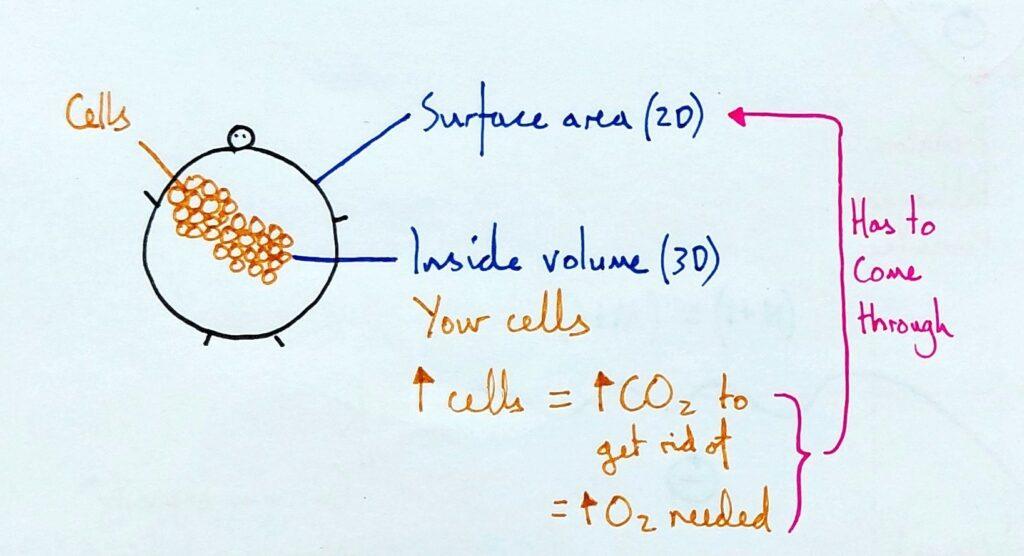 Cells
Surface area (2D)
Inside volume (3D)
Your cells
↑ cells = ↑ CO₂ to
get rid of
= ↑ O₂ needed
Has to
come
through